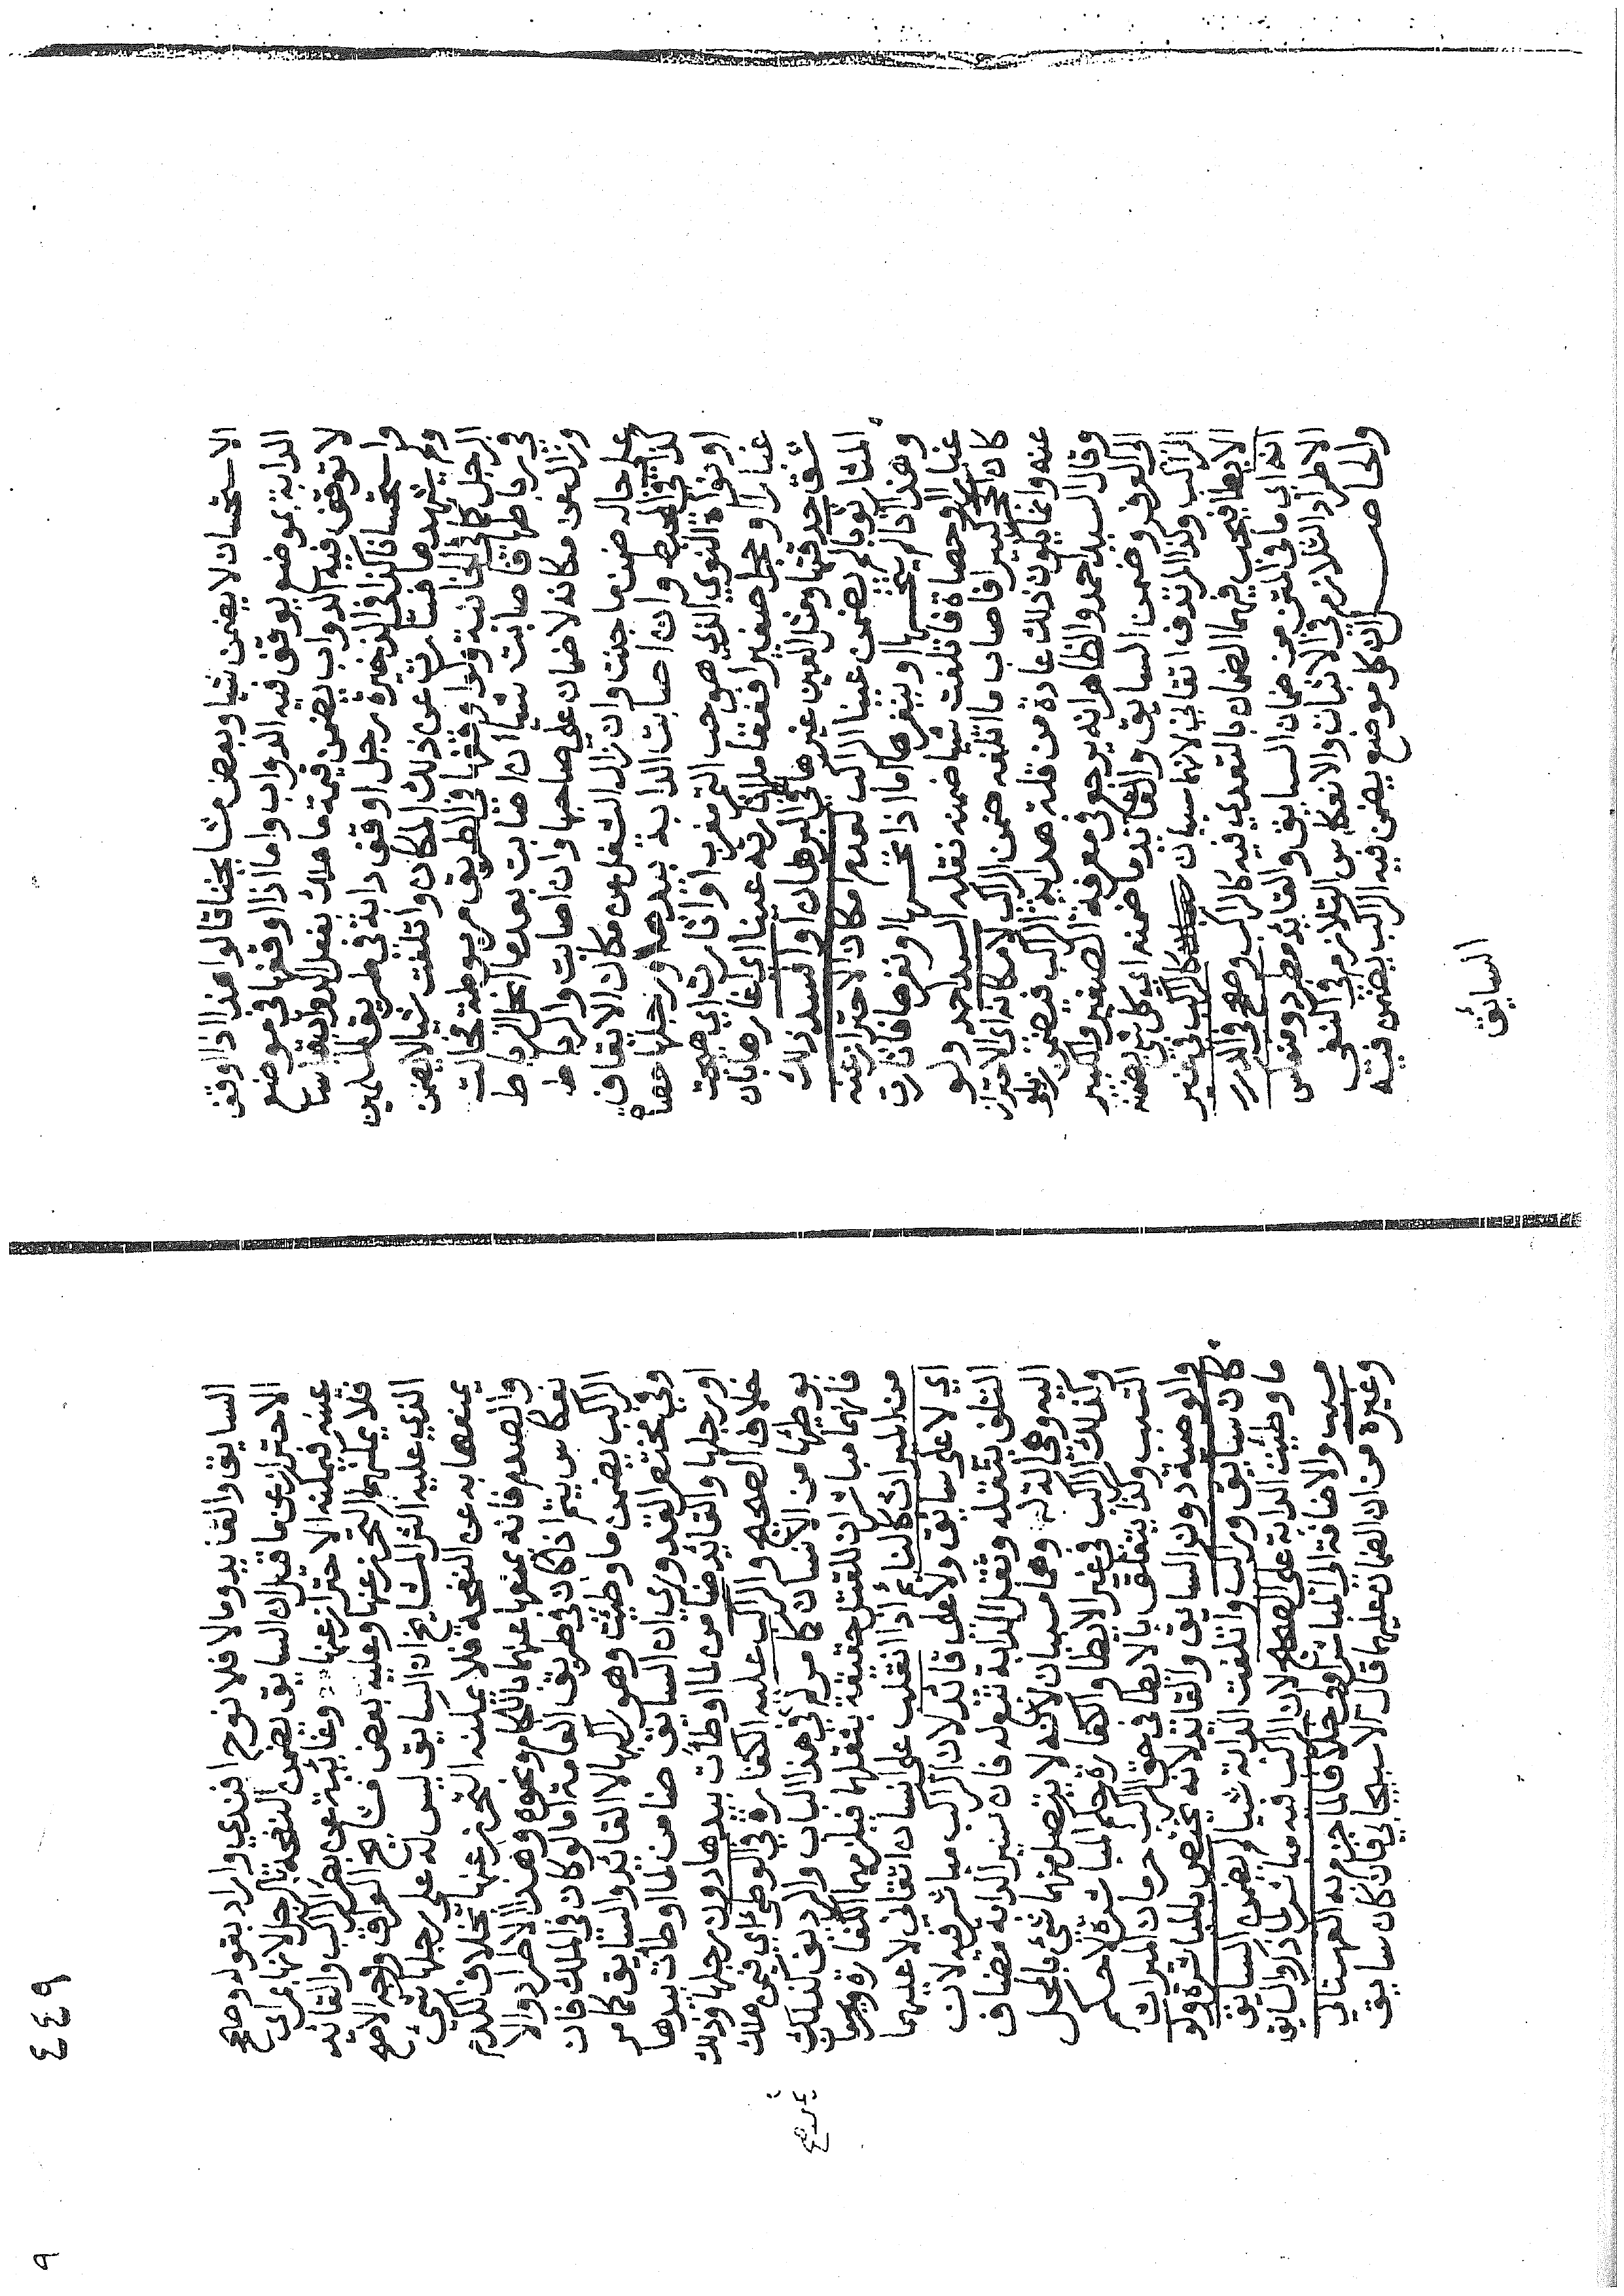 الاستحسان لا يضمن شيا وبعض مشايخنا قالوا هذا اذا اوقف
الدابة بموضع يوقف فيه الدواب واما اذا اوقفها في موضع
لا توقف فيه الدواب يضمن قيمة ما هلك بفعل الدابة قياسا
واستحسانا كذا في الذخيرة رجل اوقف دابة في طريق المسلمين
ولم يشدها فسارت عن ذلك المكان واتلفت شيا لا يضمن
الرجل كما في الخانية ولو اوقفها في الطريق مربوطة فجالت
في رباطها فاصابت شيا ان اصابت بعدما انحل الرباط
وزال عن مكانه لا ضمان على صاحبها وان اصابت والرباط
على حاله ضمن ما جنت وان زال الشغل من مكان الايقاف
كذا في المحيط وان اصابت الدابة بيدها او رجلها حصاة
او نواة النوي الذي هو حب التمر او اثارت اي هيجت
غبارا او حجرا صغيرا ففقا ما اثارته عينا اي اغارها بان
شق حدقتها ومثل العين غيرها في البرهان او افسد ذلك
المثار ثوبا لم يضمن الراكب لعدم امكان الاحتراز عنه
وهذا اذا لم ينخسها او ينفرها اما اذا نخسها او نفرها فاثارت
غبارا او حصاة فاتلفت شيا ضمنه نقله السيد احمد ولو
كان الحجر كبيرا فاصاب ما اتلفه ضمن الراكب لامكانه اي الاحتراز
عنه وانما يكون ذلك عادة من قلة هداية الراكب فيضمن زيلعي
وقال السيد احمد والظاهر انه يرجع في معرفة الصغير والكبير
الى العرف وضمن السايق والقايد ما ضمنه اي كل شي يضمنه
الراكب وكذا المرتدف اتقاني لانهما سببان كالراكب في غير
الايطا فيجب فيهما الضمان بالتعدي فيه كالراكب وصحح في الدرر
انه اي ما في المتن من ضمان السايق والقايد مطرد ومنعكس
الاطراد التلازم في الاثبات والانعكاس التلازم في النفي
والحاصل ان كل موضع يضمن فيه الراكب يضمن فيه
السائق
٤٤٩
السايق والقايد وما لا فلا نوح افندي واراد بقوله وصحح
الاحتراز عن ما قيل ان السايق يضمن النفحة بالرجل لانها بمراى
عينه فيمكنه الاحتراز عنها وغائبة عن بصر الراكب والقائد
فلا يمكنهما التحرز عنها وعليه بعض مشايخ العراق وجه الاصح
الذي عليه اكثر المشايخ ان السايق ليس له على رجلها شيء
يمنعها به عن النفحة فلا يمكنه التحرز عنها بخلاف الكدم
والصدم فانه يمنعها عنهما باللجام ونحوه وهذا الاطراد والا
نعكاس يتم اذا كان في طريق العامة اما لو كان في الملك فان
الراكب يضمن ما وطئت وهو راكبها لا القائد والسايق كما مر
وفي مختصر القدوري ان السايق ضامن لما اوطأت بيدها
او رجلها والقايد ضامن لما اوطأت بيدها دون رجلها وذلك
خلاف الصحيح والراكب عليه الكفارة في الوطئ اي فيمن هلك
بوطئها من الانسان كما مر في هذا الباب والرديف كذلك
فانهما مباشران للقتل حقيقة بثقلهما فيلزمهما الكفارة ويحرمان
من الميراث كالنايم اذا انقلب على انسان اتقاني لا عليهما
اي لا على سايق ولا على قائد لان الراكب مباشر فيه لان
التلف بثقله وثقل الدابة تتبع له فان سير الدابة مضاف
اليه وهي الة له وهما مسببان لانه لا يتصل منهما شيء بالمحل
وكذلك الراكب في غير الايطا والكفارة حكم المباشرة لا حكم
التسبب وكذا يتعلق بالايطا في حق الراكب حرمان الميراث
والوصية دون السايق والقايد لانه يختص بالمباشرة ولو
كان سايق وراكب واتلفت الدابة شيا لم يضمن السايق
ما وطيت الدابة على الصحيح لان الراكب فيه مباشر لما ذكر والسايق
مسبب والاضافة الى المباشر اولى خلافا لما جزم به القهستاني
وغيره من ان الضمان عليهما قال الاسبيجابي فان كان سايق
٩